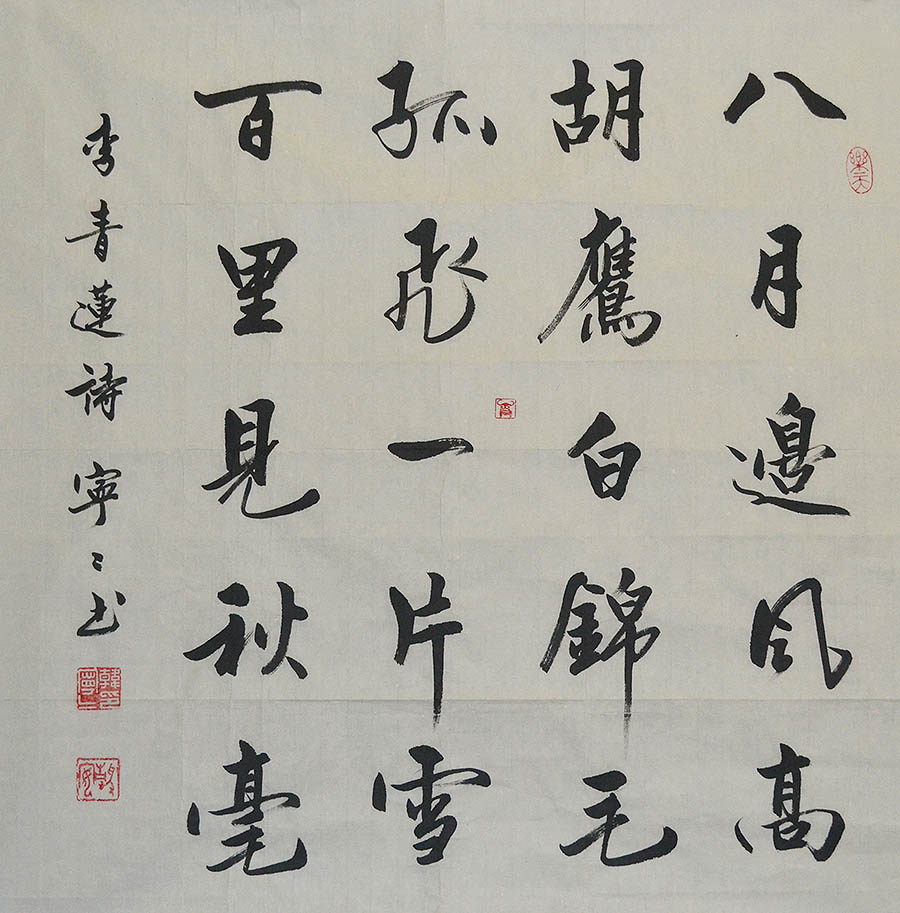 八月邊風高
胡鷹白錦毛
孤飛一片雪
百里見秋毫
李青蓮詩寧〻书
樂天